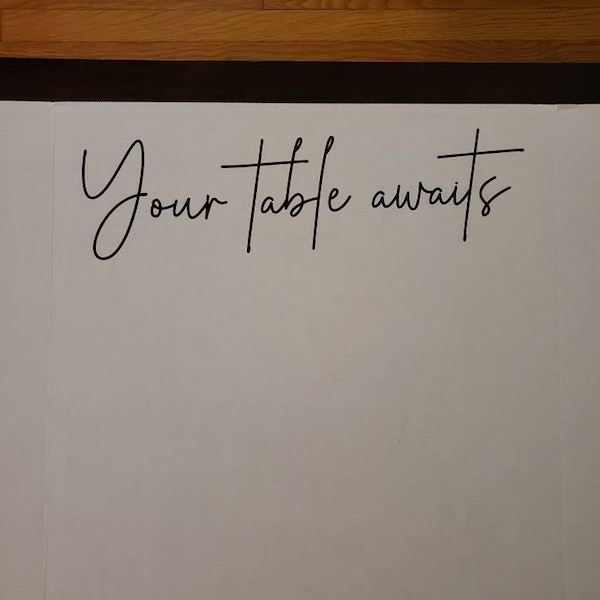 Your table awaits